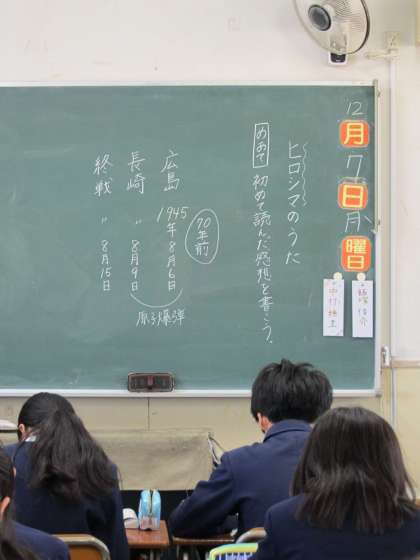 12月7日月曜日
ヒロシマのうた
めあて 初めて読んだ感想を書こう。
70年前
広島 1945年8月6日
長崎 〃 8月9日
終戦 〃 8月15日
原子爆弾